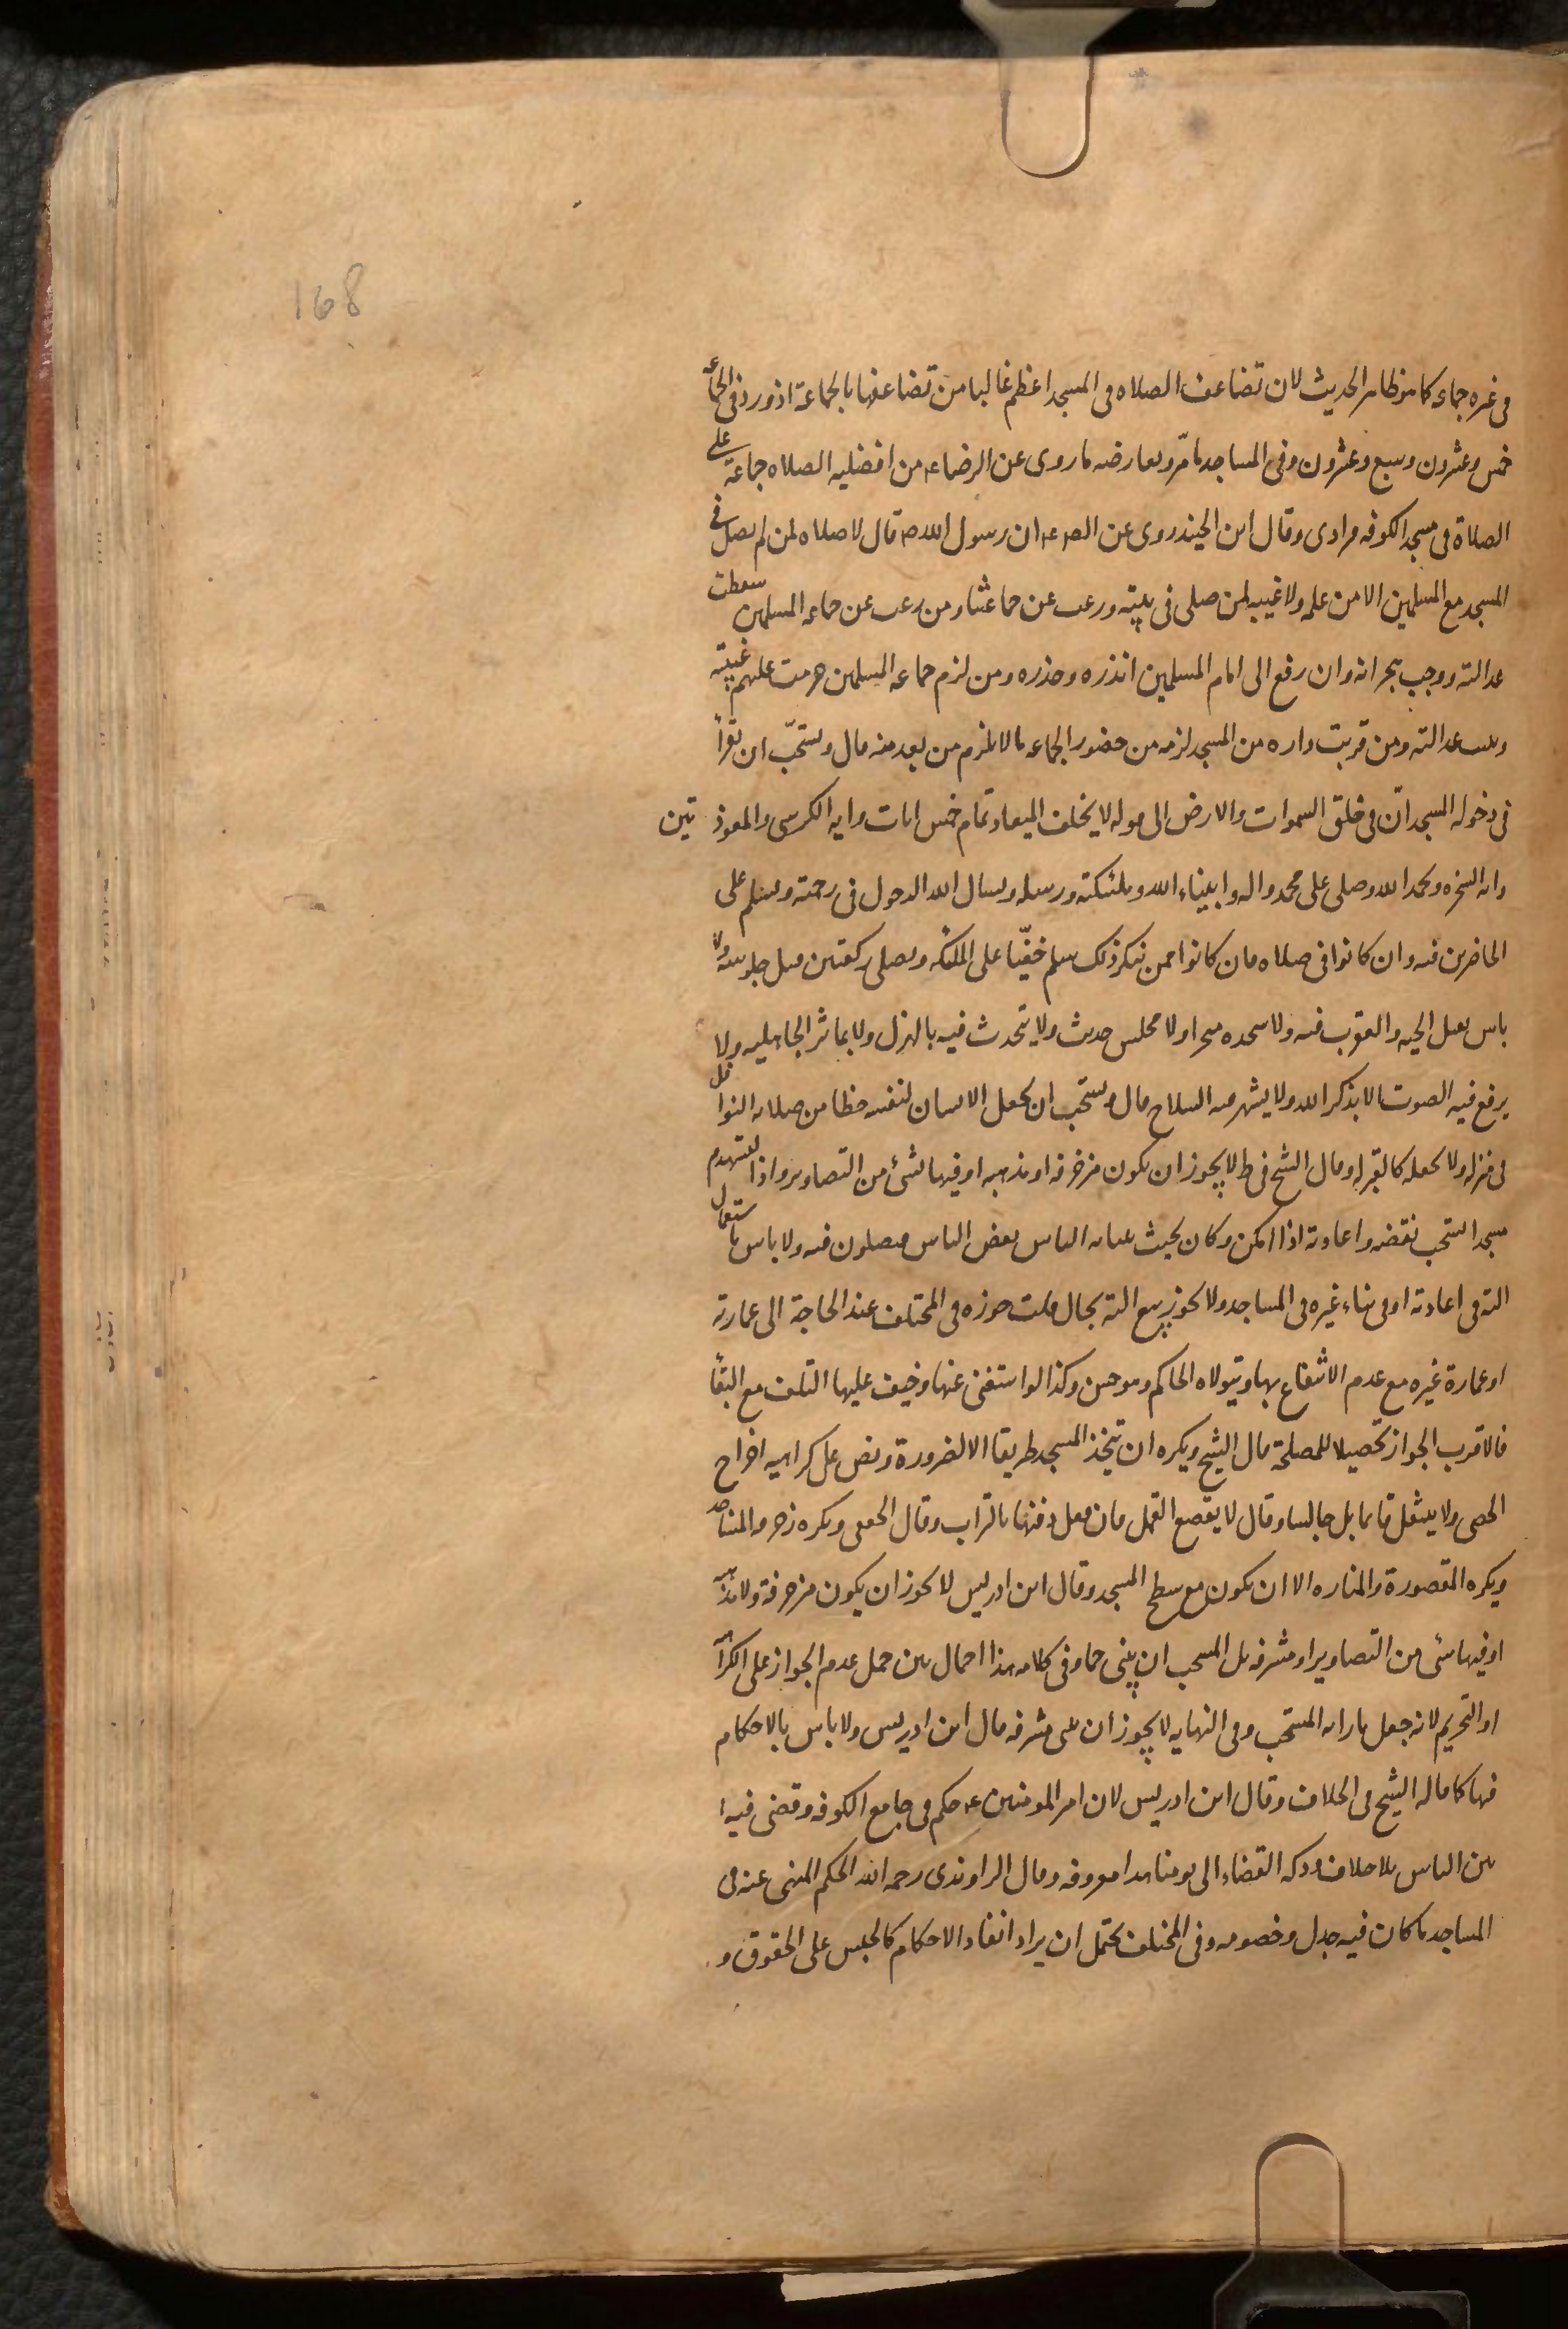 168
فى غيره جماعه كما هو ظاهر الحديث لان تضاعف الصلاه فى المسجد اعظم غالبا من تضاعفها بالجماعة اذ ورد فى الجماعه
خمس وعشرون وسبع وعشرون وفى المساجد ما مرّ ويعارضه ما روى عن الرضا ع من افضليه الصلاه جماعة على
الصلاة فى مسجد الكوفه فرادى وقال ابن الجنيد روى عن الص ع ان رسول الله ص قال لا صلاه لمن لم يصل فى
المسجد مع المسلمين الا من علة ولا غيبه لمن صلى فى بيته ورغب عن جماعتنا ومن رغب عن جماعه المسلمين سقطت
عدالته ووجب هجرانه وان رفع الى امام المسلمين انذره وحذره ومن لزم جماعه المسلمين حرمت عليهم غيبته
وثبتت عدالته ومن قربت داره من المسجد لزمه من حضور الجماعه ما لا يلزم من بعد منه قال ويستحبّ ان يقرأ
فى دخوله المسجد انّ فى خلق السموات والارض الى قوله لا يخلف الميعاد تمام خمس ايات وايه الكرسى والمعوذتين
وايه السخره ويحمد الله ويصلى على محمد واله وانبياء الله وملئكته ورسله ويسال الله الدخول فى رحمته ويسلم على
الحاضرين فيه وان كانوا فى صلاه فان كانوا ممن ينكر ذلك سلم خفيّا على الملئكه ويصلى ركعتين قبل جلوسه ولا
باس بقتل الحيه والعقرب فيه ولا يتخذه متجرا ولا مجلس حديث ولا يتحدث فيه بالهزل ولا بماثر الجاهليه ولا
يرفع فيه الصوت الا بذكر الله ولا يشهر فيه السلاح قال ويستحب ان يجعل الانسان لنفسه حظا من صلاته النوافل
فى منزله ولا يجعله كالقبر له وقال الشيخ فى ط لا يجوز ان يكون مزخرفه او مذهبه او فيها شئ من التصاوير واذا استهدم
مسجد استحب نقضه واعادته اذا امكن وكان بحيث ينتابه الناس بعض الناس فيصلون فيه ولا باس باستعمال
الته فى اعادته او فى بناء غيره فى المساجد ولا يجوز بيع الته بحال قلت جوزه فى المختلف عند الحاجة الى عمارته
او عمارة غيره مع عدم الانتفاع بها ويتولاه الحاكم وهو حسن وكذا لو استغنى عنها وخيف عليها التلف مع البقا
فالاقرب الجواز تحصيلا للمصلحة قال الشيخ ويكره ان يتخذ المسجد طريقا الا لضرورة ونص على كراهيه اخراج
الحصى ولا ينتعل قائما بل جالسا وقال لا يقصع القمل فان فعل دفنها بالتراب وقال الجعفى ويكره زخرفه المساجد
ويكره المقصورة والمناره الا ان يكون مع سطح المسجد وقال ابن ادريس لا يجوز ان يكون مزخرفة ولا مذهبه
او فيها شئ من التصاوير او مشرفه بل المستحب ان يبنى جما وفى كلامه هذا احتمال بين حمل عدم الجواز على الكراهه
او التحريم لانه جعل بازائه المستحب وفى النهايه لا يجوز ان يبنى مشرفه قال ابن ادريس ولا باس بالاحكام
فيها كما قاله الشيخ فى الخلاف وقال ابن ادريس لان امير المومنين ع حكم فى جامع الكوفه وقضى فيه
بين الناس بلا خلاف ودكه القضاء الى يومنا هذا معروفه وقال الراوندى رحمه الله الحكم المنهى عنه فى
المساجد ما كان فيه جدل وخصومه وفى المختلف يحتمل ان يراد انفاذ الاحكام كالحبس على الحقوق و